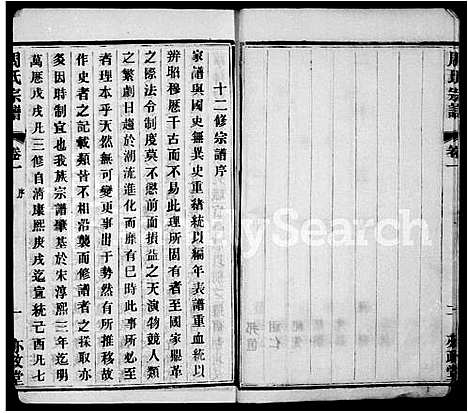 周氏宗譜
卷一
二
亦政堂
邦
十二修宗譜序
家譜與國史無異史重緒統以編年表譜重血統以
辨昭穆歷千古而不易此理所固有者至國家鼎革
之際法令制度莫不懲前而損益之天演物競人類
之繁劇日趨於潮流進化而靡有已時此事之所必
者理本乎大常可久可變更事出於勢然有所推移故
作史者之記載類皆不相沿襲而修譜者之採取亦
多因時制宜也我族宗譜肇基於宋淳熙三年迄明
萬曆戊戌凡三修自清康熙庚戌迄宣統己酉凡七
周氏宗譜
卷一
序
一
亦政堂
MySearch